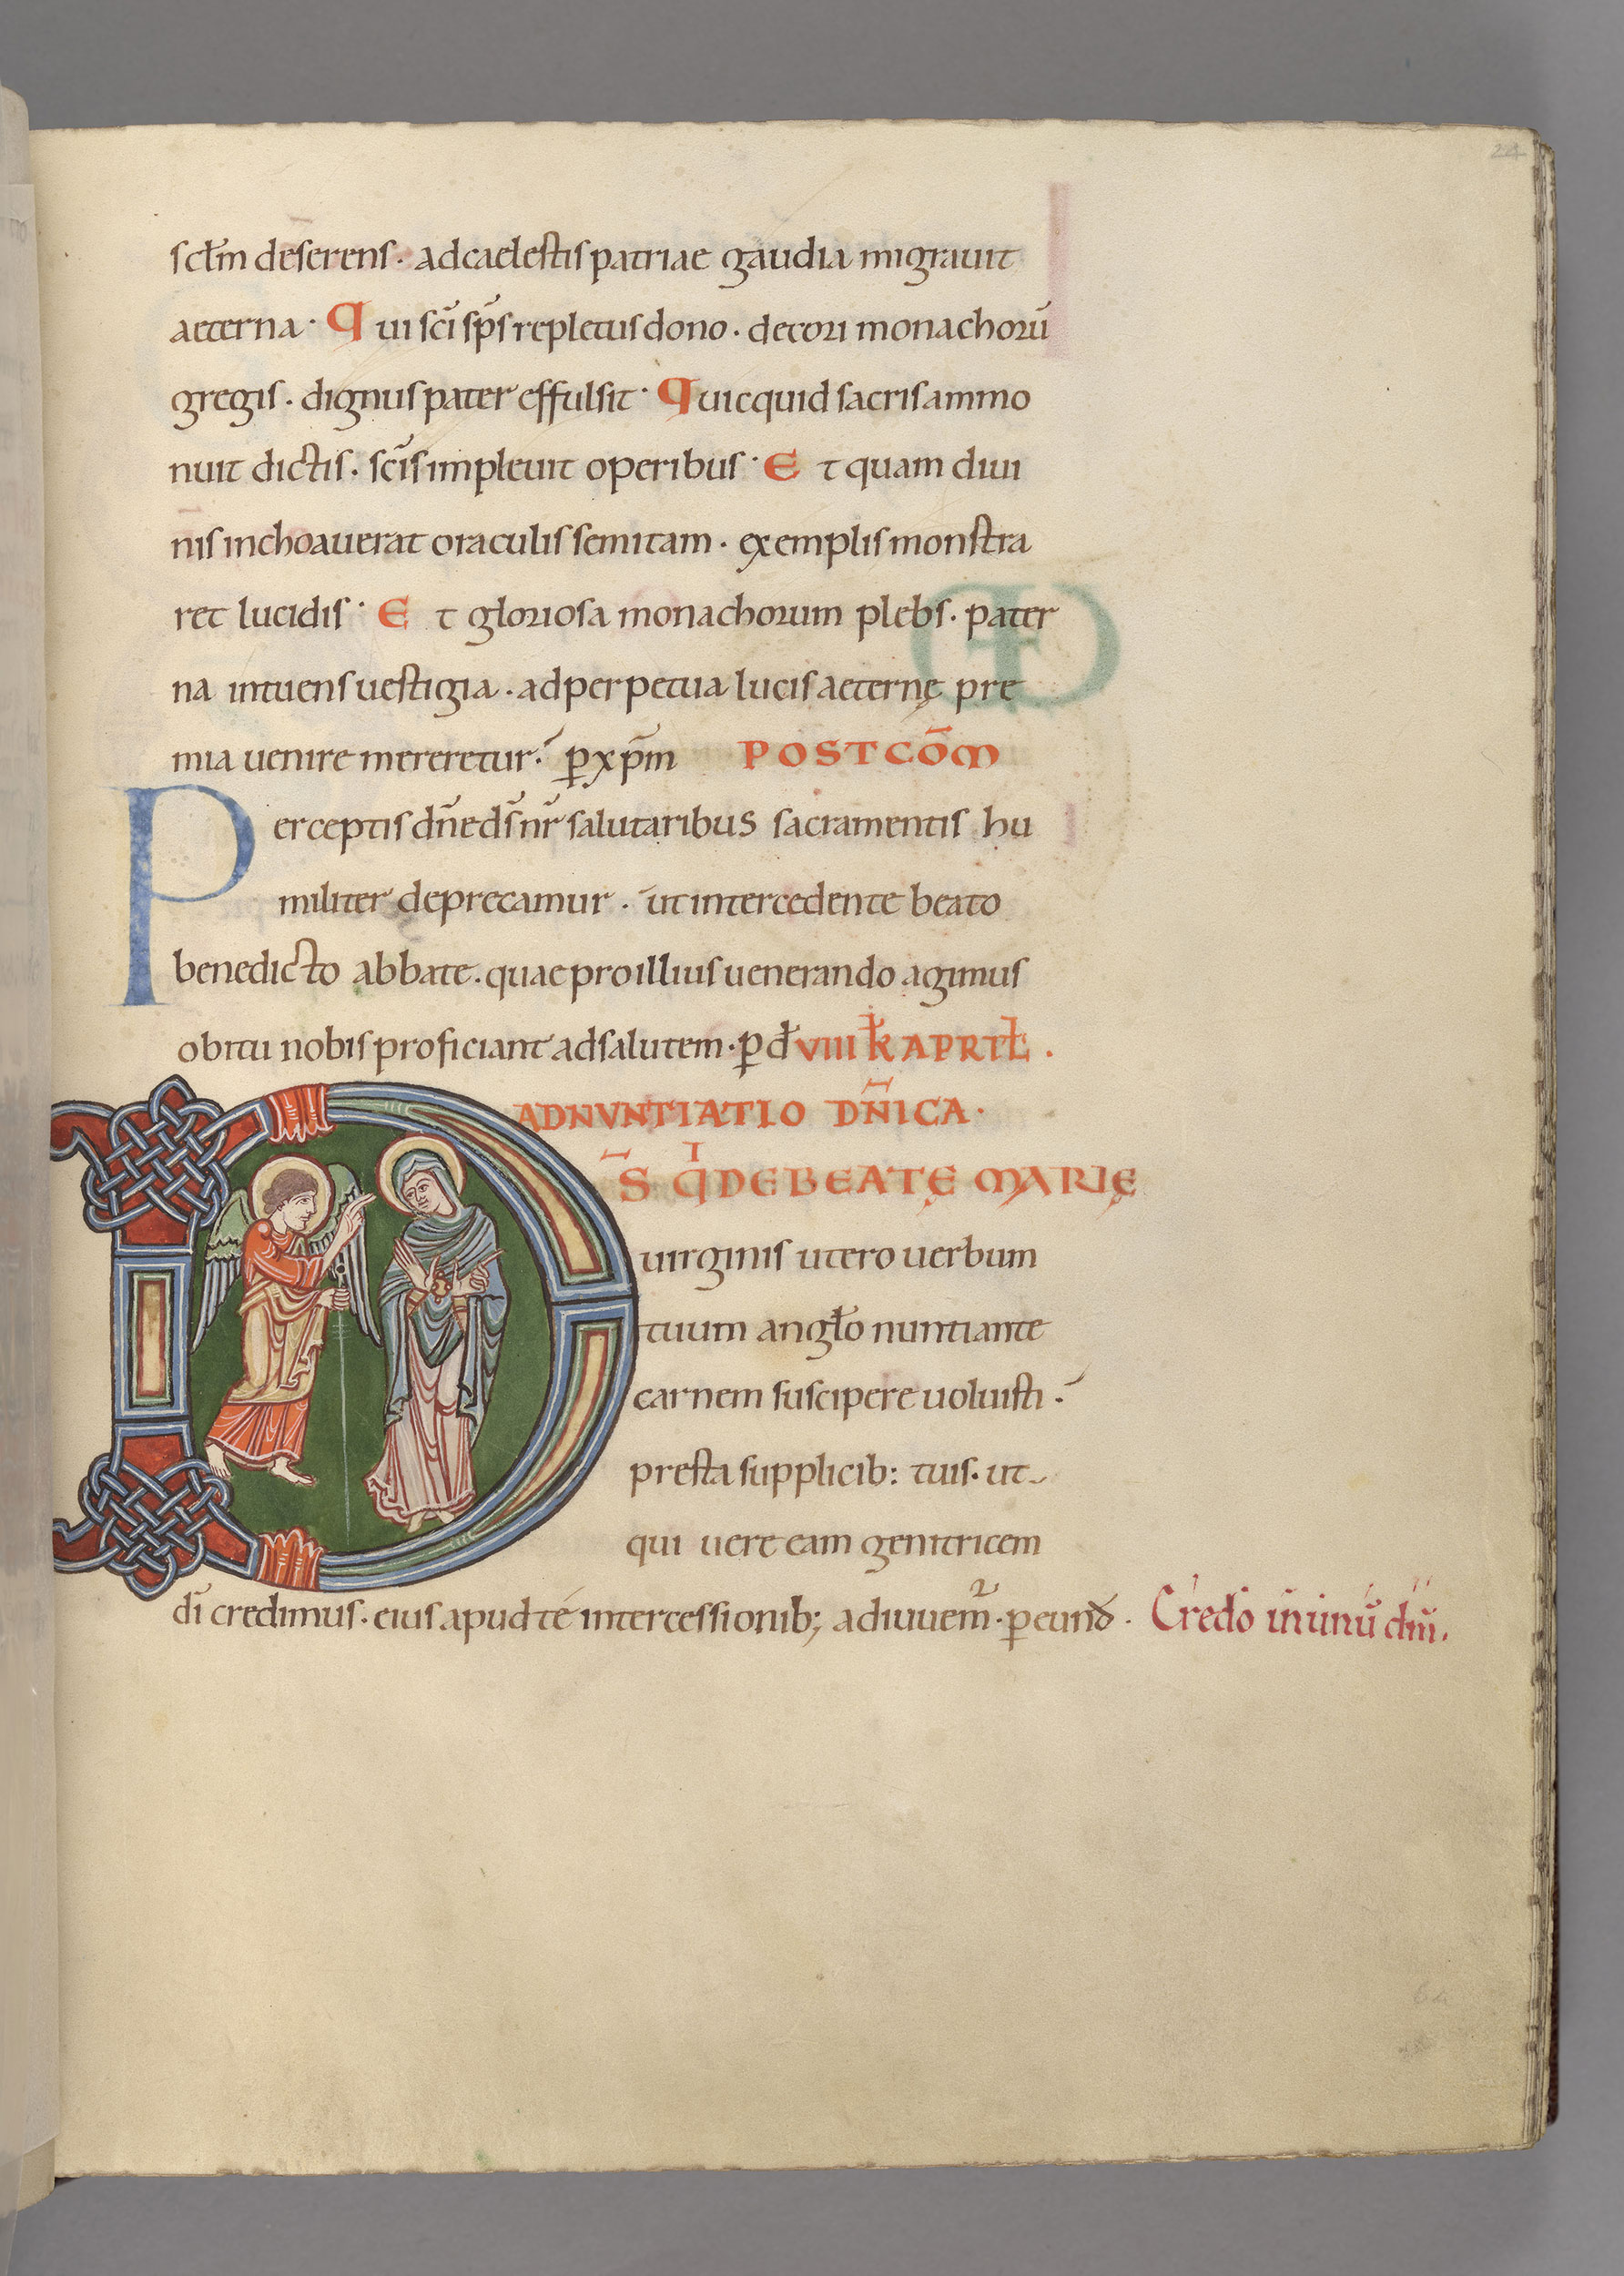 24
sclm̄ deserens · ad caelestis patriae gaudia migrauit
aeterna · Qui sc̄i sp̄s repletus dono · decori monachorū
gregis · dignus pater effulsit · Quicquid sacris ammo
nuit dictis · sc̄is impleuit operibus · Et quam diui
nis inchoauerat oraculis semitam · exemplis monstra
ret lucidis · Et gloriosa monachorum plebs · pater
na intuens uestigia · ad perpetua lucis aeternę pre
mia uenire mereretur · ꝑ xp̄m POST COM̄
Perceptis dn̄e ds̄ nr̄ salutaribus sacramentis hu
militer deprecamur · ut intercedente beato
benedicto abbate · quae pro illius uenerando agimus
obitu nobis proficiant ad salutem · ꝑ d̄ VIII K̄ APRIL̄ ·
ADNVNTIATIO DN̄ICA ·
D̄S QI DE BEATĘ MARIĘ
uirginis utero uerbum
tuum angl̄o nuntiante
carnem suscipere uoluisti ·
presta supplicib: tuis · ut
qui uere eam genitricem
dī credimus · eius apud té intercessionib; adiuuem̄ · ꝑ eund̄ · Credo in unū dm̄ ·